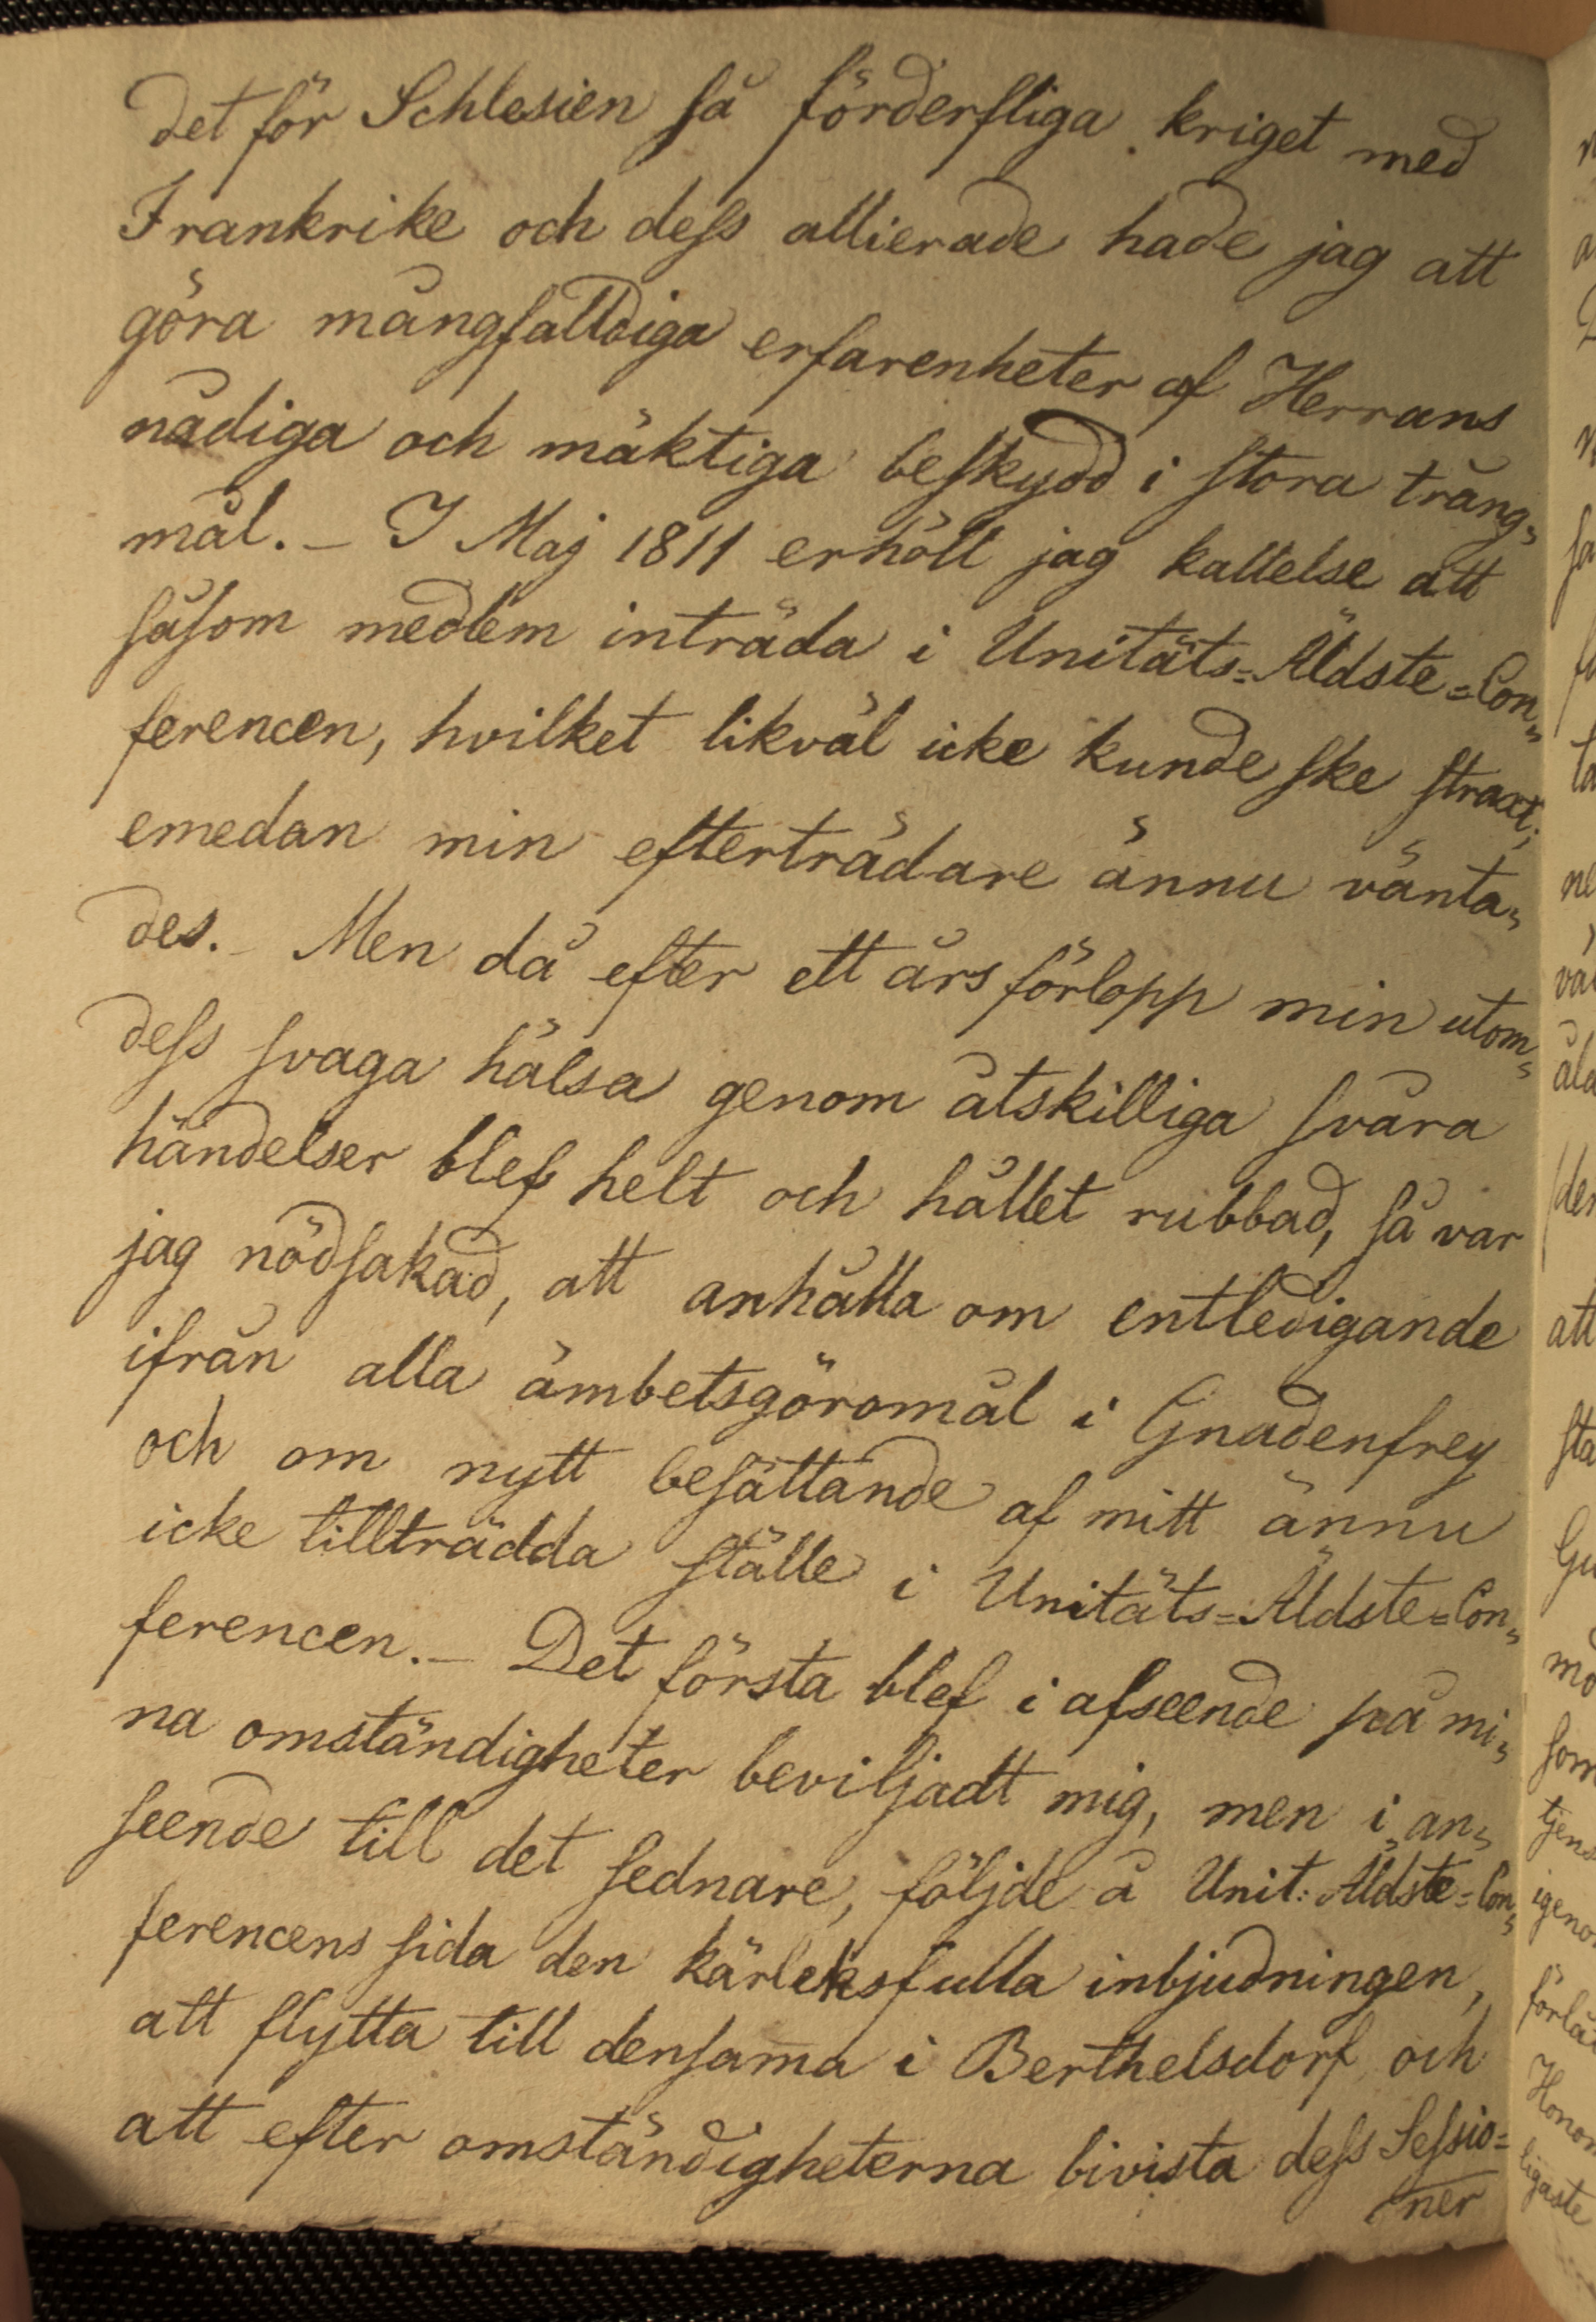 det för Schlesien så förderfliga kriget med
Frankrike och dess allierade hade jag att
göra mångfalldiga erfarenheter af Herrans
nådiga och mäktiga beskydd i stora trång„
mål. – I Maj 1811 erhöll jag kallelse att
såsom medlem inträda i Unitäts=Äldste=Con„
ferencen, hvilket likväl icke kunde ske straxt,
emedan min efterträdare ännu vänta„
des. – Men då efter ett års förlopp min utom„
dess svaga hälsa genom åtskilliga svåra
händelser blef helt och hållet rubbad, så var
jag nödsakad, att anhålla om entledigande
ifrån alla ämbetsgöromål i Gnadenfrey
och om nytt besättande af mitt ännu
icke tillträdda ställe i Unitäts=Äldste=Con„
ferencen. – Det första blef i afseende på mi„
na omständigheter beviljadt mig, men i an„
seende till det sednare, följde å Unit: Äldste=Con„
ferencens sida den kärleksfulla inbjudningen,
att flytta till densama i Berthelsdorf och
att efter omständigheterna bivista dess Sessio=
ner